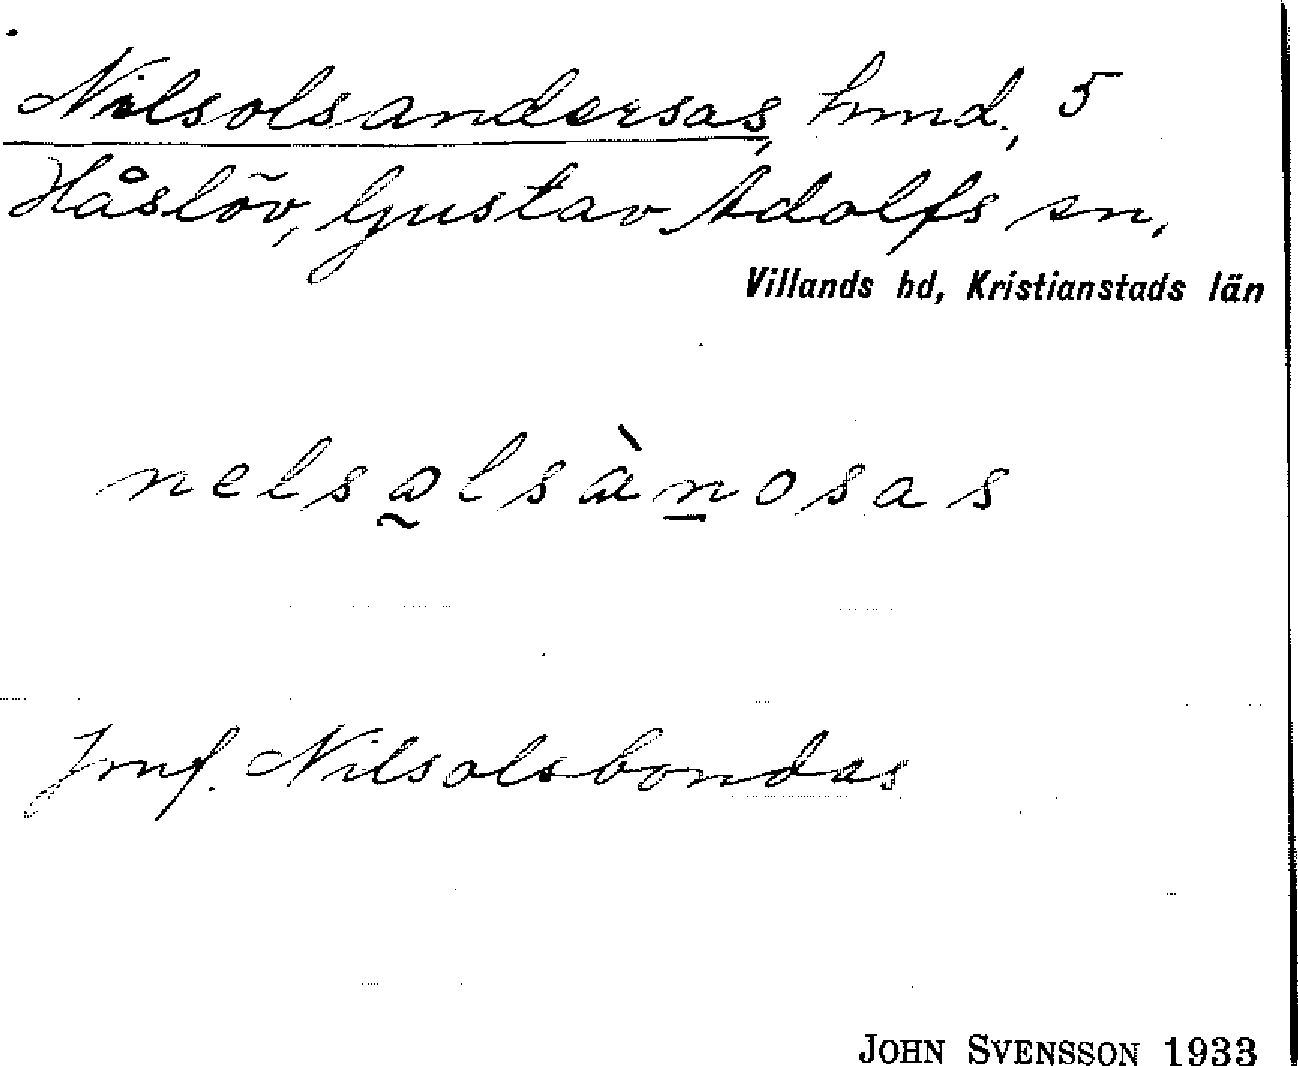 Nilsolsandersas, hmd., 5
Håslöv, Gustav Adolfs sn,
Villands hd, Kristianstads län
nelsɷlsὰn̲osas
Jmf. Nilsolsbondas
JOHN SVENSSON 1933